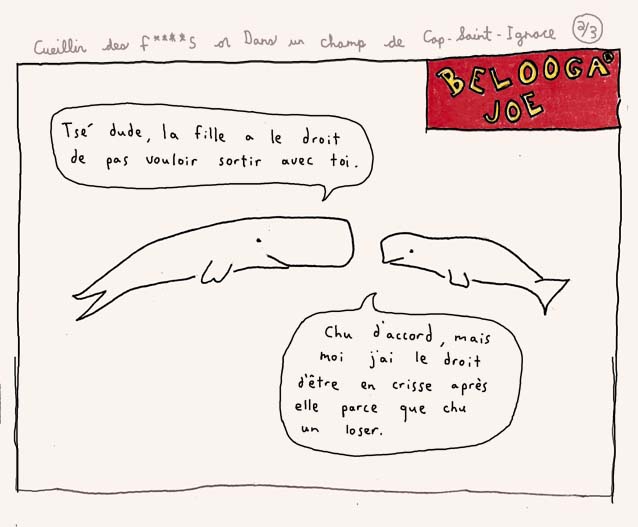 Cueillir des f****s or Dans un champ de Cap-Saint-Ignace 2/3
BELOOGA
JOE
Tsé dude, la fille a le droit
de pas vouloir sortir avec toi.
Chu d'accord, mais
moi j'ai le droit
d'être en crisse après
elle parce que chu
un loser.